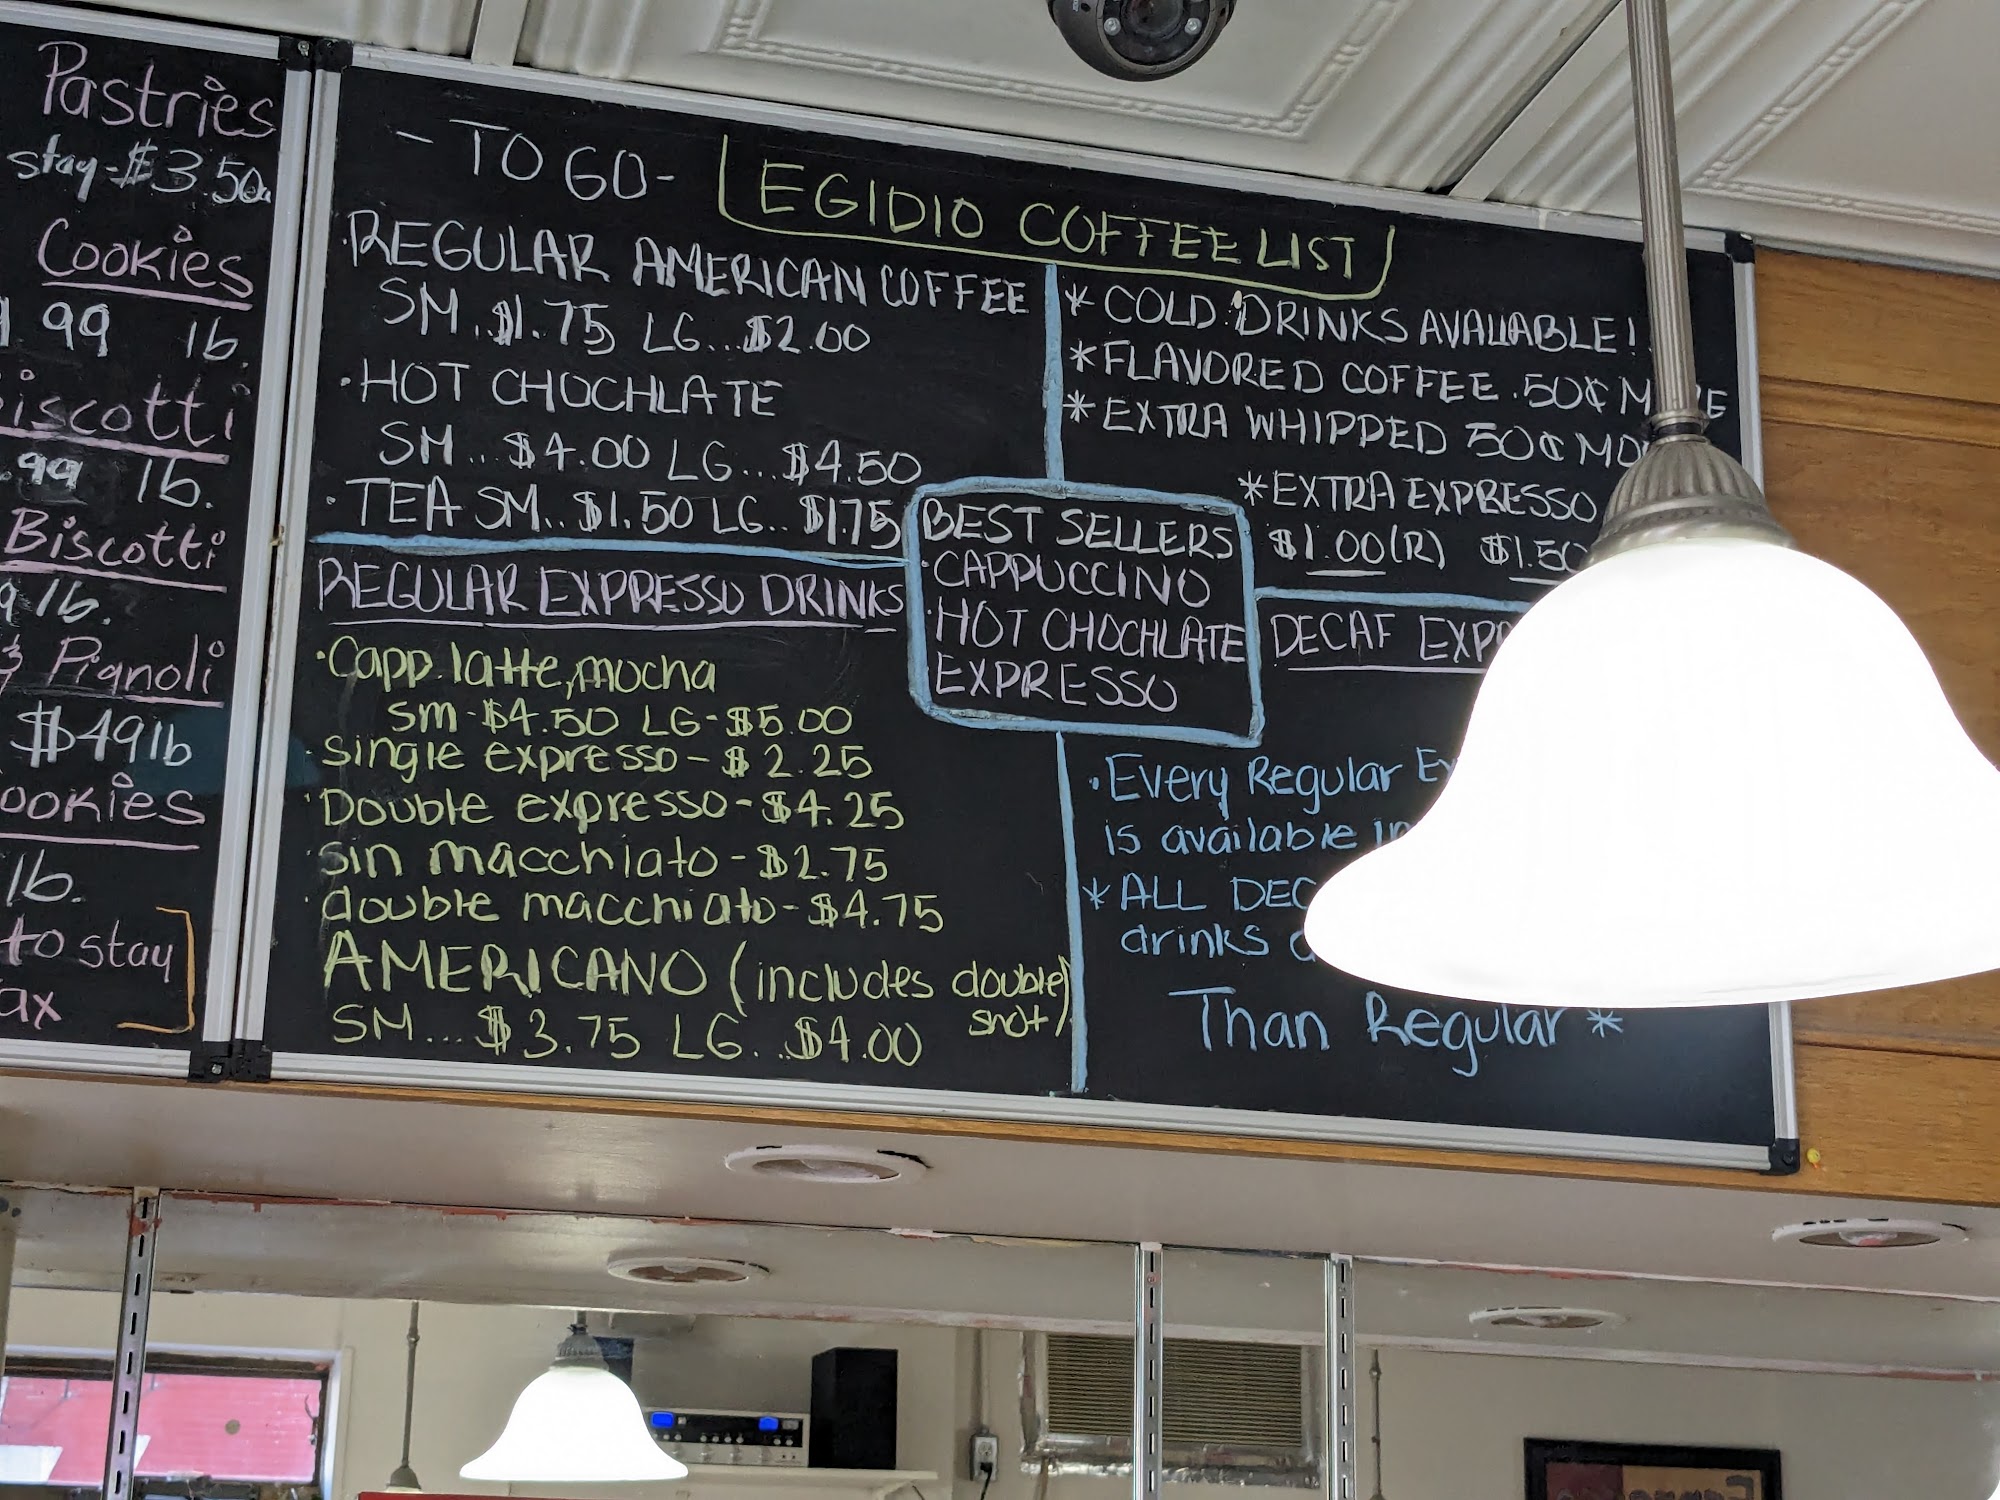 Pastries
stay-$3.50ea
Cookies
99 lb.
iscotti
.99 lb.
Biscotti
9 lb.
Pignoli
$49 lb
ookies
lb.
to stay
ax
-TO GO-
EGIDIO COFFEE LIST
·REGULAR AMERICAN COFFEE
SM..$1.75 LG...$2.00
·HOT CHOCHLATE
SM...$4.00 LG...$4.50
·TEA SM..$1.50 LG..$1.75
REGULAR EXPRESSO DRINKS
·Capp.latte,mocha
sm-$4.50 LG-$5.00
·single expresso-$2.25
·Double expresso-$4.25
·sin macchiato-$2.75
·double macchiato-$4.75
AMERICANO (includes double
shot)
SM...$3.75 LG...$4.00
BEST SELLERS
·CAPPUCCINO
·HOT CHOCHLATE
EXPRESSO
*COLD DRINKS AVALIABLE!
*FLAVORED COFFEE .50¢ M E
*EXTRA WHIPPED 50¢ MO
*EXTRA EXPRESSO
$1.00(R) $1.50
DECAF EXP
·Every Regular Ex
is available in
*ALL DEC
drinks
Than Regular*